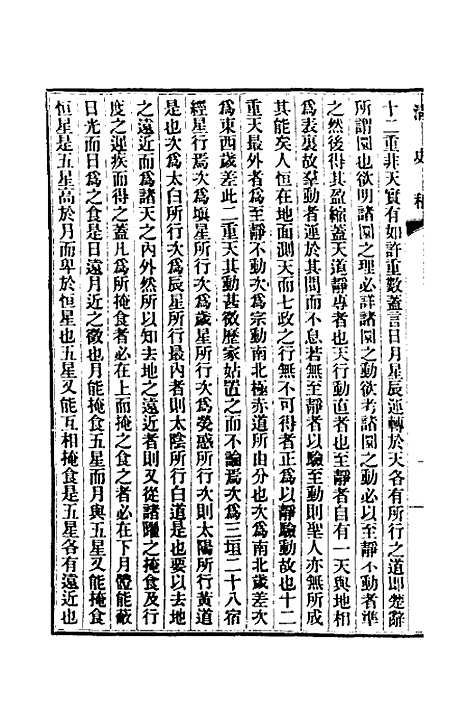 清史稿
十二重非天實有如許重數蓋言日月星辰運轉於天各有所行之道卽楚辭
所謂圜也欲明諸圜之理必詳諸圜之動欲考諸圜之動必以至靜不動者準
之然後得其盈縮蓋天道靜專者也天行動直者也至靜者自有一天與地相
爲表裏故羣動者運於其間而不息若無至靜者以驗至動則聖人亦無所成
其能矣人恒在地面測天而七政之行無不可得者正爲以靜驗動故也十二
重天最外者爲至靜不動次爲宗動南北極赤道所由分也次爲南北歲差次
爲東西歲差此二重天其動甚微歷家姑置之而不論焉次爲三垣二十八宿
經星行焉次爲塡星所行次爲歲星所行次爲熒惑所行次則太陽所行黃道
是也次爲太白所行次爲辰星所行最內者則太陰所行白道是也要以去地
之遠近而爲諸天之內外然所以知去地之遠近者則又從諸曜之掩食及行
度之遲疾而得之蓋凡爲所掩食者必在上而掩之食之者必在下月體能蔽
日光而日爲之食是日遠月近之徵也月能掩食五星而月與五星又能掩食
恒星是五星高於月而卑於恒星也五星又能互相掩食是五星各有遠近也